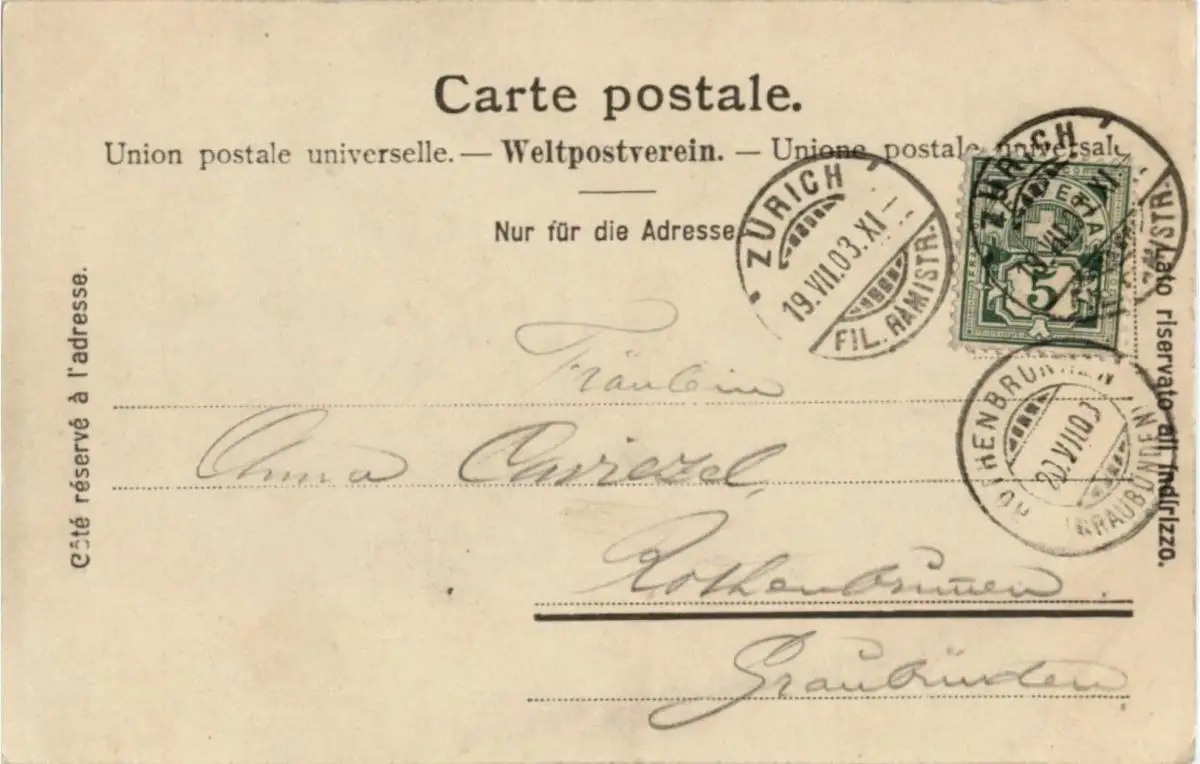 Carte postale.
Union postale universelle. — Weltpostverein. — Unione postale universale
Nur für die Adresse
Côté réservé à l'adresse.
Lato riservato all'indirizzo.
ZÜRICH
19.VII.03.XI–
FIL. RÄMISTR.
ZÜRICH
19.VII.03.XI
RÄMISTR.
HELVETIA
5
ROTHENBRUNNEN
20.VII.03
(GRAUBÜNDEN)
Fräulein
Anna Caviezel,
Rothenbrunnen.
Graubünden